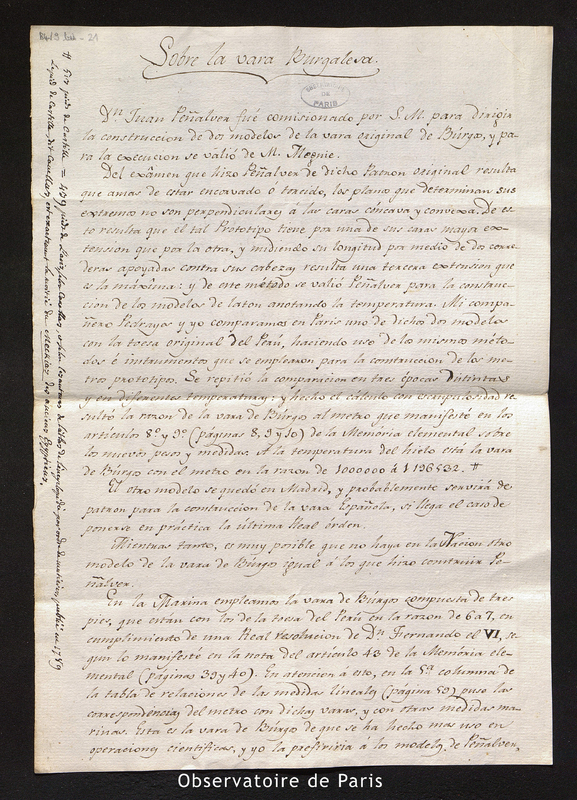 Sobre la vara Burgalesa.
OBSERVATOIRE DE PARIS
Dn. Juan Peñalver fué comisionado por S. M. para dirigir
la construccion de dos modelos de la vara original de Búrgos, y pa-
ra la execucion se valió de M. Megnie.
Del exámen que hizo Peñalver de dicho Patron original resulta
que amas de estar encorvado o torcido, los planos que determinan sus
extremos no son perpendiculares á las caras cóncava y convexa. De es-
to resulta que el tal Prototipo tiene por una de sus caras mayor ex-
tension que por la otra, y midiendo su longitud por medio de dos corre-
deras apoyadas contra sus cabezas, resulta una tercera extension que
es la máxîma: y de este método se valió Peñalver para la construc-
cion de los modelos de laton anotando la temperatura. Mi compa-
ñero Pedrayes y yo comparamos en Paris uno de dichos dos modelos
con la toesa original del Perú, haciendo uso de los mismos méto-
dos é instrumentos que se emplearon para la construccion de los me-
tros prototipos. Se repitió la comparacion en tres épocas distintas
y en diferentes temperaturas: y hecho el cálculo con escrupulosidad re-
sultó la razon de la vara de Búrgos al metro que manifesté en los
artículos 8º. y 9º. (páginas 8, 9 y 10) de la Memória elemental sobre
los nuevos pesos y medidas. A la temperatura del hielo está la vara
de Búrgos con el metro en la razon de 1000000 á 1196532. #
El otro modelo se quedó en Madrid, y probablemente servirá de
patron para la construccion de la vara Española, si llega el caso de
ponerse en práctica la última Real órden.
Mientras tanto, es muy posible que no haya en la Nacion otro
modelo de la vara de Búrgos igual á los que hizo construir Pe-
ñalver.
En la Marina empleamos la vara de Búrgos compuesta de tres
pies, que estan con los de la toesa del Perú en la razon de 6 a 7, en
cumplimiento de una Real resolucion de Dn. Fernando el VI, se-
gun lo manifesté en la nota del artículo 43 de la Memória ele-
mental (páginas 39 y 40). En atencion á esto, en la 5ª. columna de
la tabla de relaciones de las medidas lineales (página 59) puse las
correspondencias del metro con dichas varas, y con otras medidas ma-
rinas. Esta es la vara de Búrgos de que se ha hecho mas uso en
operaciones científicas, y yo la prefiriria á los modelos de Peñalver.
Observatoire de Paris